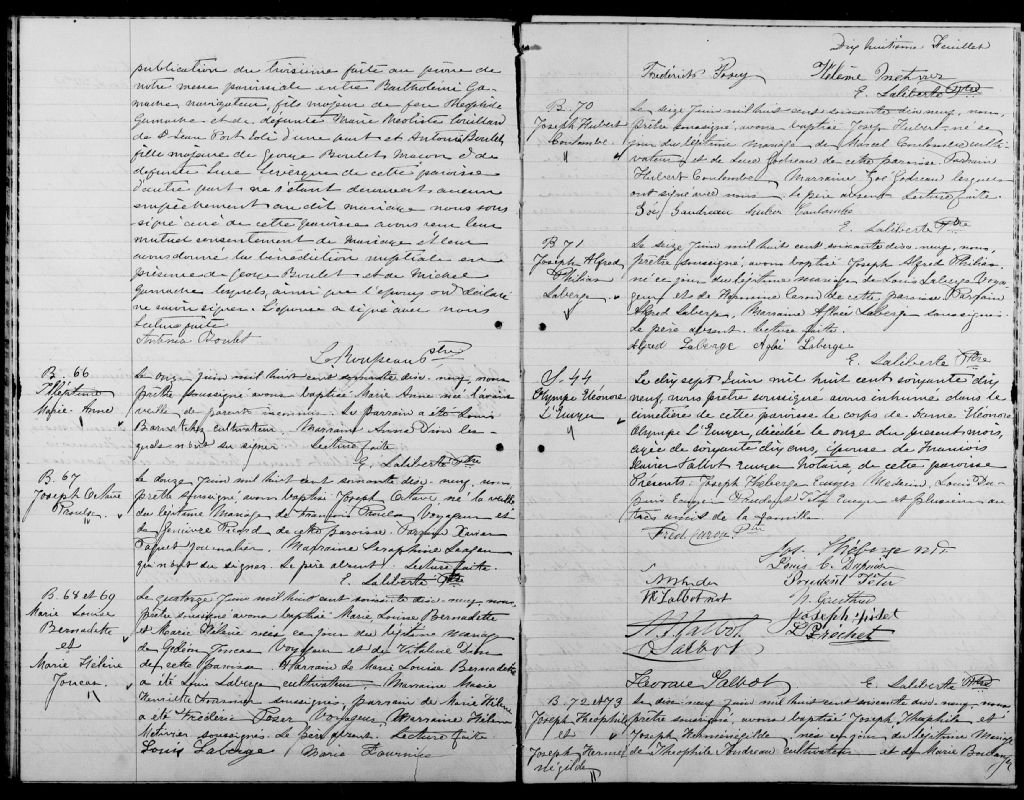 publication du troisième faite au prône de
notre messe paroissiale entre Barthelémi Ga-
mache navigateur, fils majeur de feu Théophile
Gamache et de défunte Marie Caillard
de St Jean Port Joli d'une part et Antonia Boulet,
fille majeure de George Boulet Maçon et de
défunte Luce Lavergne de cette paroisse
d'autre part ne s'étant découvert aucun
empêchement au dit mariage nous sous-
signé curé de cette paroisse avons reçu leur
mutuel consentement de mariage et leur
avons donné la bénédiction nuptiale en
présence de George Boulet et de Michel
Gamache lesquels, ainsi que l'époux ont déclaré
ne savoir signer. L'épouse a signé avec nous
Lecture faite
Antonia Boulet
Rouleau ptre
B. 66
Marie Anne
Le onze Juin mil huit cent soixante dix-neuf, nous
prêtre soussigné avons baptisé Marie Anne née l'avant
veille de parents inconnus. Le parrain a été Louis
cultivateur Marraine Anne Dion les-
quels n'ont su signer. Lecture faite
E. Laliberté Ptre
B. 67
Joseph Octave
Proulx
Le douze Juin mil huit cent soixante dix-neuf, nous
prêtre soussigné, avons baptisé Joseph Octave né la veille
du légitime Mariage de François Proulx Voyageur et
de Genivive Picard de cette paroisse. Parrain Xavier
Paquet Journalier. Marraine Séraphine
qui n'ont su signer. Le père absent. Lecture faite.
E. Laliberté Ptre
B. 68 et 69
Marie Louise
Bernadette
et
Marie Hélène
Joncas
Le quatorze Juin mil huit cent soixante dix-neuf, nous
prêtre soussigné avons baptisé Marie Louise Bernadette
et Marie Hélène nées ce jour du légitime mariage
de Gédéon Joncas Voyageur et de Vitaline Dion
de cette paroisse Parrain de Marie Louise Bernadette
a été Louis Laberge cultivateur, Marraine Marie
Henriette Fournier soussignés, parrain de Marie Hélène
a été Fréderic Posey Voyageur Marraine Hélène
Métivier soussignés. Le père absent. Lecture faite
Louis Laberge Marie Fournier
Dix huitième Feuillet
Frédérick Posey Hélène
E. Laliberté Ptre
B. 70
Joseph Hubert
Coulombe
Le seize Juin mil huit cent soixante dix neuf, nous,
prêtre soussigné, avons baptisé Joseph Hubert né ce
jour du légitime mariage de Marcel Coulombe culti-
vateur et de Luce Godreau de cette paroisse Parrain
Hubert Coulombe Marraine Zoé Godreau lesquels
ont signé avec nous le père absent Lecture faite
Zoé Gaudreau Hubert Coulombe
E. Laliberté Ptre
B 71
Joseph Alfred
Philias
Laberge
Le seize Juin mil huit cent soixante dix neuf, nous,
prêtre soussigné, avons baptisé Joseph Alfred Philias
né ce jour du légitime mariage de Louis Laberge Voya-
geur et de Hermine Caron de cette paroisse Parrain
Alfred Laberge, Marraine Aglaé Laberge soussignés
le père absent. Lecture faite.
Alfred Laberge Aglaé Laberge
E. Laliberté Ptre
S. 44
Olympe Eléonore
L'Ecuyer
Le dix sept Juin mil huit cent soixante dix
neuf, nous prêtre soussigné avons inhumé dans le
cimetière de cette paroisse le corps de Dame Eléonore
Olympe L'Ecuyer, décédée le onze du présent mois,
agée de soixante dix ans, épouse de François
Xavier Talbot Ecuyer Notaire, de cette paroisse
Présents: Joseph Theberge Ecuyer Médecin, Louis Du-
puis Ecuyer Prudent Têtu Ecuyer et plusieurs au-
tres amis de la famille.
Fred Caron Ptre
Jos. Théberge M.D.
Louis C. Dupuis
Prudent Têtu
Talbot not
Joseph
P. Fréchet
Talbot
Talbot
Talbot E. Laliberté Ptre
B. 72 et 73
Joseph Théophile
et
Joseph Hermé-
négilde
Le dix-neuf Juin mil huit cent soixante dix-neuf, nous
prêtre soussigné, avons baptisé Joseph Théophile et
Joseph Herménégilde nés ce jour du légitime Mariage
de Théophile Gaudreau cultivateur et de Marie Boulanger